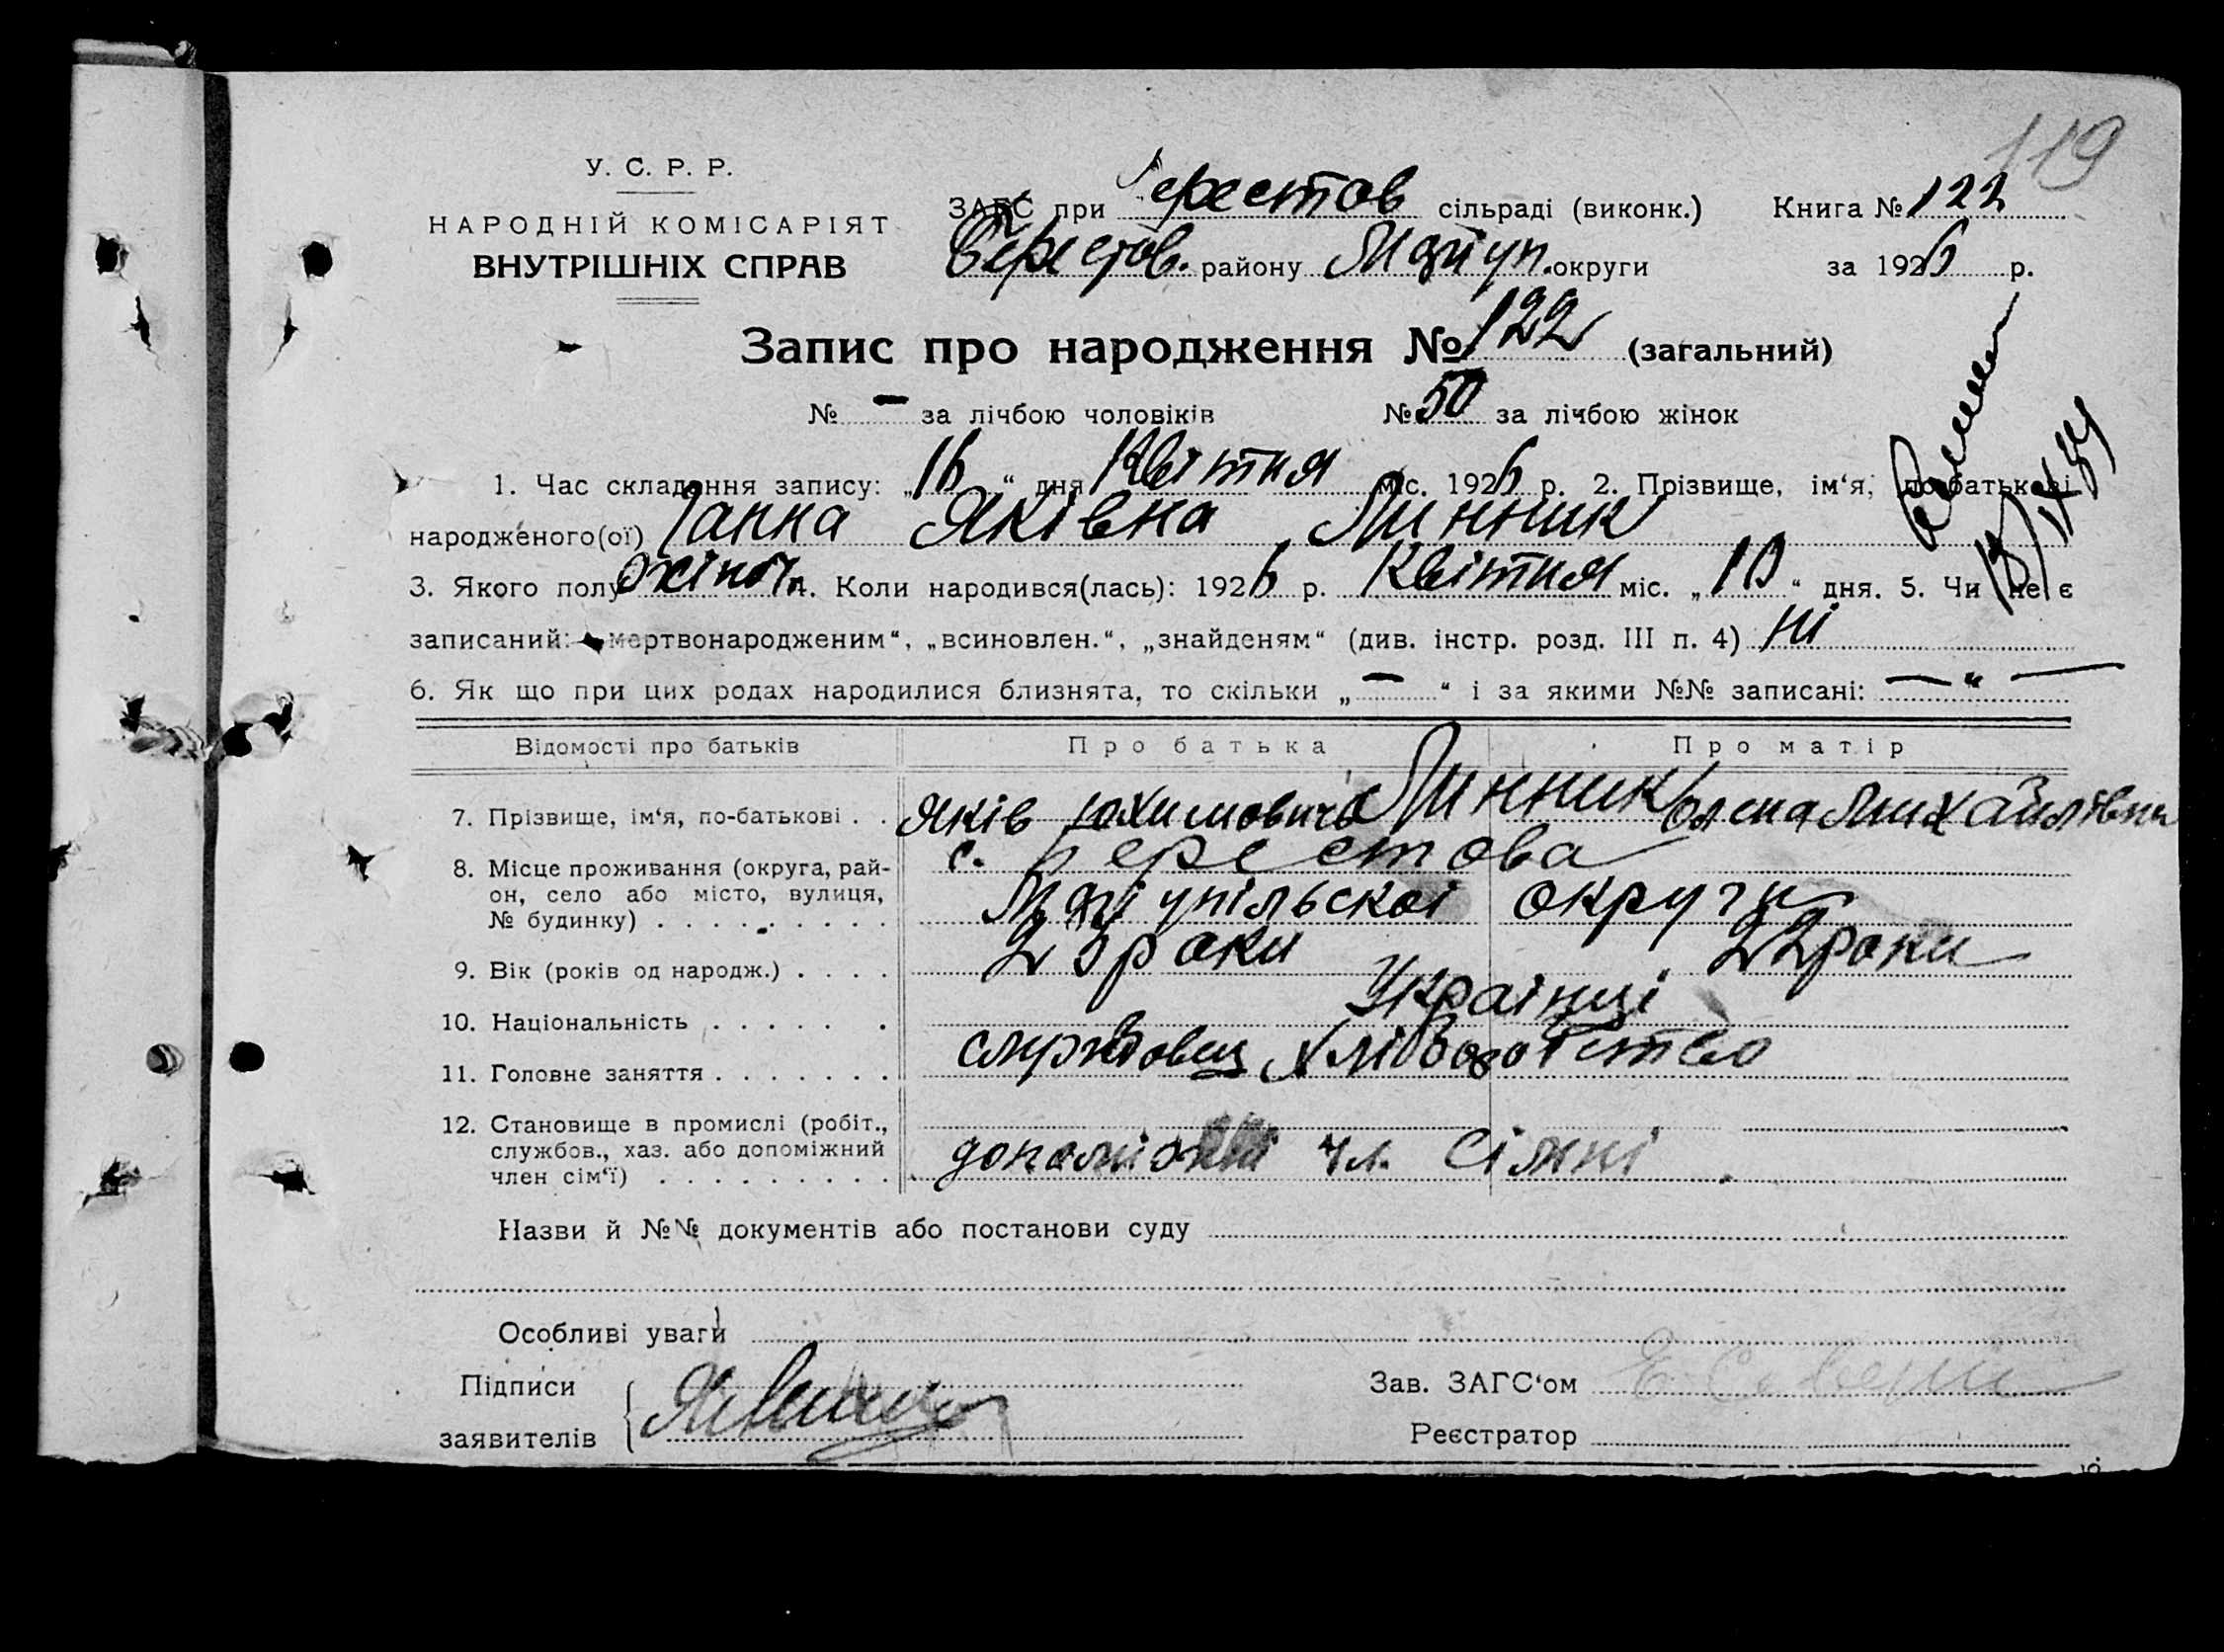 119
У. С. Р. Р.
НАРОДНІЙ КОМІСАРІЯТ
ВНУТРІШНІХ СПРАВ
ЗАГС при Берестов сільраді (виконк.) Книга № 122
Берестов. району Маріуп. округи за 1926 р.
Запис про народження № 122 (загальний)
№ — за лічбою чоловіків № 50 за лічбою жінок
1. Час складання запису: „16“ дня Квітня міс. 1926 р. 2. Прізвище, ім‘я, по-батькові
народженого(ої) Ганна Яківна Линник
3. Якого полу жіноч. 4. Коли народився(лась): 1926 р. Квітня міс. „10“ дня. 5. Чи не є
записаний: „мертвонародженим“, „всиновлен.“, „знайденям“ (див. інстр. розд. III п. 4) ні
6. Як що при цих родах народилися близнята, то скільки „—“ і за якими №№ записані: — “ —
Відомості про батьків Про батька Про матір
7. Прізвище, ім‘я, по-батькові . . Яків Юхимович Линник Олена Михайлівна
8. Місце проживання (округа, рай- с. Берестова
он, село або місто, вулиця, Маріупільскоі округи
№ будинку) . . . . . . . . .
9. Вік (років од народж.) . . . . 23 роки 22 роки
10. Національність . . . . . . Українці
11. Головне заняття . . . . . . . службовец хліборобство
12. Становище в промислі (робіт.,
службов., хаз. або допоміжний допоміжні чл. сімні
член сім‘ї) . . . . . . . . .
Назви й №№ документів або постанови суду
Особливі уваги
Підписи
заявителів
Зав. ЗАГС‘ом
Реєстратор